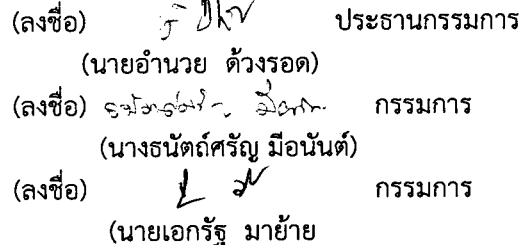 (ลงชื่อ) ประธานกรรมการ
(นายอำนวย ด้วงรอด)
(ลงชื่อ) กรรมการ
(นางธนัตถ์ศรัญ มีอนันต์)
(ลงชื่อ) กรรมการ
(นายเอกรัฐ มาย้าย